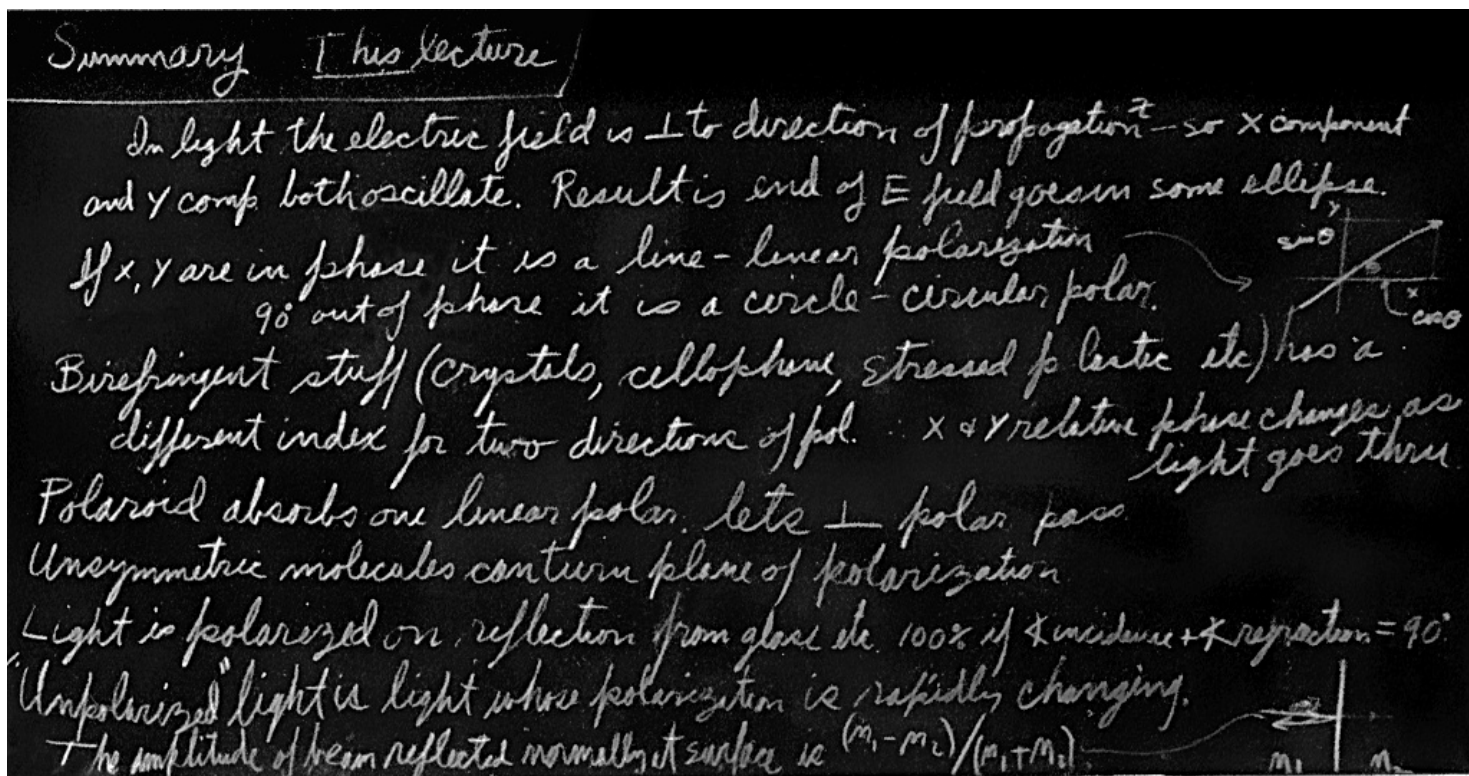 Summary This lecture
In light the electric field is ⊥ to direction of propagation z - so X component
and Y comp. both oscillate. Result is end of E field goes in some ellipse.
If X, Y are in phase it is a line - linear polarization
90° out of phase it is a circle - circular polar.
y
sin θ
θ
x
cos θ
Birefringent stuff (crystals, cellophane, stressed plastic etc) has a
different index for two directions of pol. ∴ X & Y relative phase changes as
light goes thru
Polaroid absorbs one linear polar. lets ⊥ polar pass
Unsymmetric molecules can turn plane of polarization
Light is polarized on reflection from glass etc 100% if ∡ incidence + ∡ refraction = 90°
"Unpolarized" light is light whose polarization is rapidly changing.
The amplitude of beam reflected normally at surface is (n₁-n₂)/(n₁+n₂)
n₁ n₂